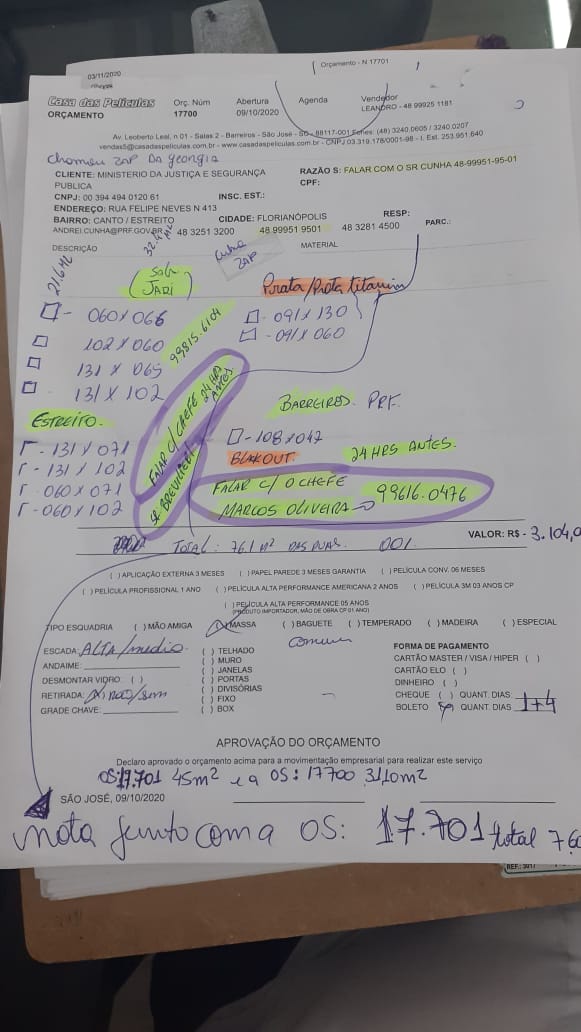 Orçamento - N 17701
03/11/2020
Casa das Películas
ORÇAMENTO
Orç. Núm
17700
Abertura
09/10/2020
Agenda
Vendedor
LEANDRO - 48 99925 1181
Av. Leoberto Leal, n 01 - Salas 2 - Barreiros - São José - SC - 88117-001 Fones: (48) 3240.0605 / 3240.0207
vendas5@casadaspeliculas.com.br - www.casadaspeliculas.com.br - CNPJ 03.319.178/0001-98 - I. Est. 253.951.640
chamou ZAP Da georgia
CLIENTE: MINISTERIO DA JUSTIÇA E SEGURANÇA
PUBLICA
RAZÃO S: FALAR COM O SR CUNHA 48-99951-95-01
CPF:
CNPJ: 00 394 494 0120 61
INSC. EST.:
ENDEREÇO: RUA FELIPE NEVES N 413
BAIRRO: CANTO / ESTREITO
CIDADE: FLORIANÓPOLIS
RESP:
ANDREI.CUNHA@PRF.GOV.BR
48 3251 3200
48 99951 9501
48 3281 4500
PARC.:
DESCRIÇÃO
MATERIAL
Cunha
ZAP
21.6 M2
Prata/Preta titanium
060 x 066
091 x 130
102 x 060
091 x 060
131 x 065
131 x 102
99815.6104
FALAR C/ CHEFE 24 HRS
ANTES.
ESTREITO.
BARREIROS. PRF.
131 x 071
131 x 102
060 x 071
060 x 102
108 x 042
BLAKOUT
24 HRS ANTES.
FALAR C/ O CHEFE
MARCOS OLIVEIRA
99616.0476
VALOR: R$ - 3.104,0
TOTAL: 76,1 M² DAS DUAS. 001.
( ) APLICAÇÃO EXTERNA 3 MESES ( ) PAPEL PAREDE 3 MESES GARANTIA ( ) PELÍCULA CONV. 06 MESES
( ) PELÍCULA PROFISSIONAL 1 ANO ( ) PELÍCULA ALTA PERFORMANCE AMERICANA 2 ANOS ( ) PELÍCULA 3M 03 ANOS CP
( ) PELÍCULA ALTA PERFORMANCE 05 ANOS
(PRODUTO IMPORTADOR, MÃO DE OBRA CP 01 ANO)
TIPO ESQUADRIA ( ) MÃO AMIGA (X) MASSA ( ) BAGUETE ( ) TEMPERADO ( ) MADEIRA ( ) ESPECIAL
comum
ESCADA: ALTA/medio.
ANDAIME:
DESMONTAR VIDRO: ( )
RETIRADA: (X) não/sem
GRADE CHAVE:
( ) TELHADO
( ) MURO
( ) JANELAS
( ) PORTAS
( ) DIVISÓRIAS
( ) FIXO
( ) BOX
FORMA DE PAGAMENTO
CARTÃO MASTER / VISA / HIPER ( )
CARTÃO ELO ( )
DINHEIRO ( )
CHEQUE ( ) QUANT. DIAS:
BOLETO (X) QUANT. DIAS 1+4
APROVAÇÃO DO ORÇAMENTO
Declaro aprovado o orçamento acima para a movimentação empresarial para realizar este serviço
OS: 17.701 45m² e a OS: 17700 31,10m²
SÃO JOSÉ, 09/10/2020
nota junto com a OS: 17.701 total 76